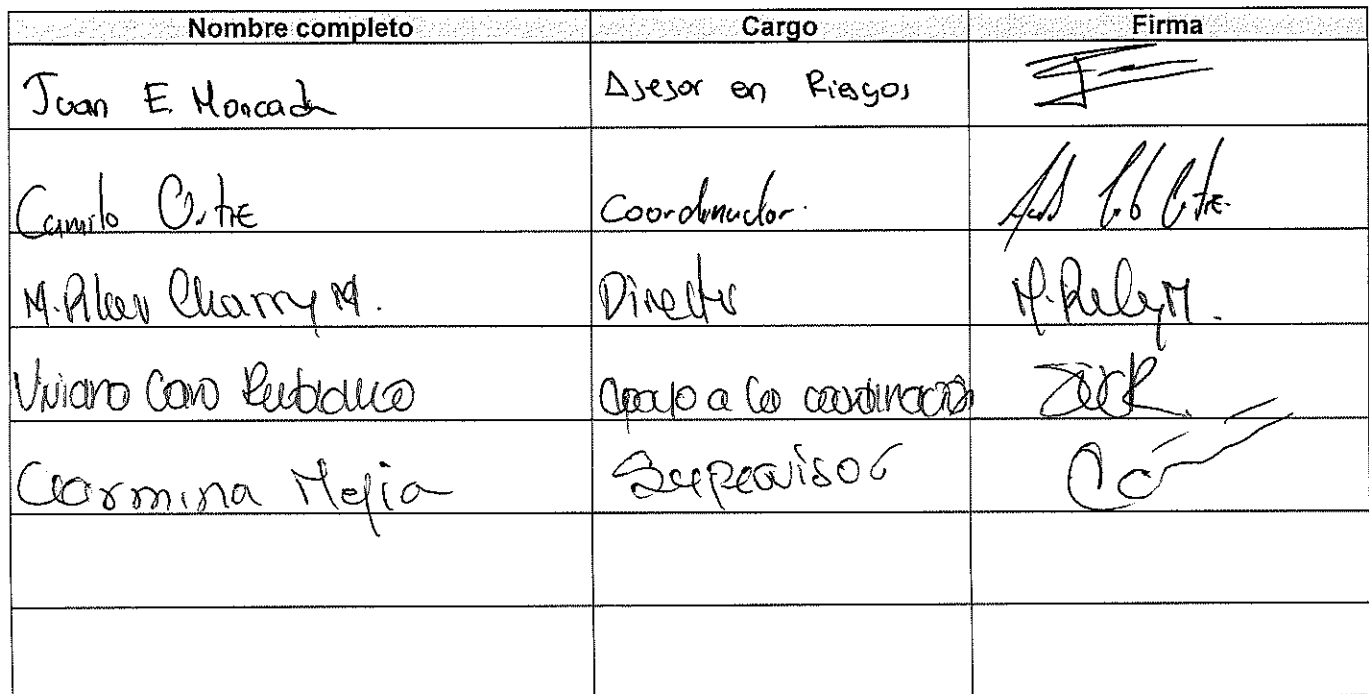 Nombre completo Cargo Firma
Juan E Moncada Asesor en Riesgos
Camilo Coordinador.
M. Pilar Charry M. Director
Viviana Caro apoyo a la coordinación
Carmina Mejia Supervisor